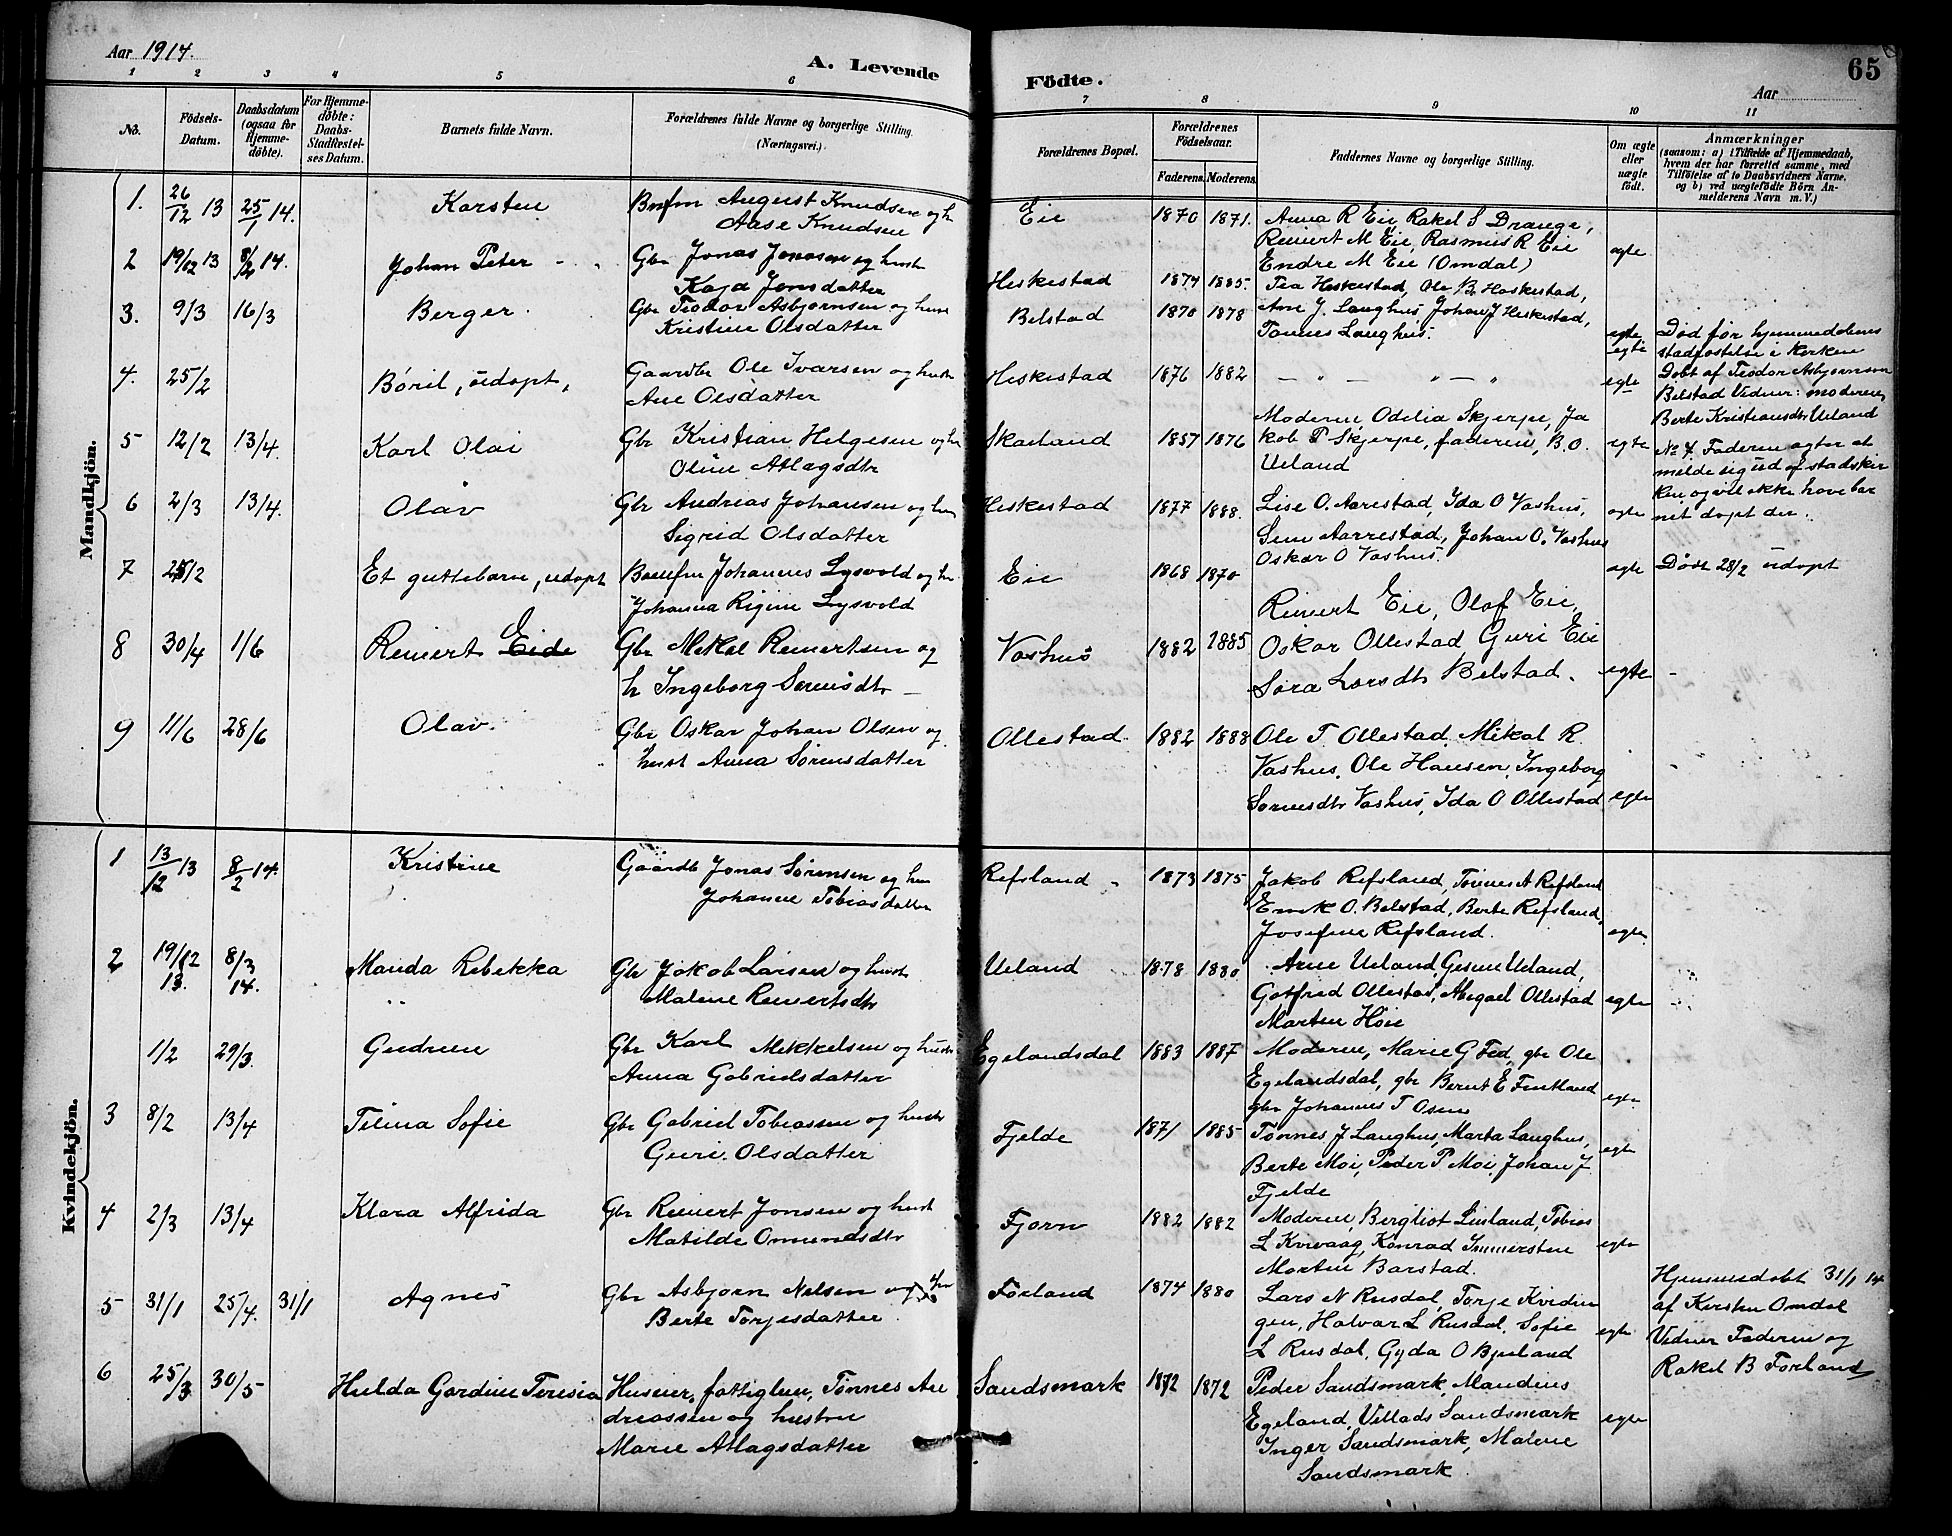 Aar 1914.
A. Levende
Födte.
65
Aar
1 2 3 4 5 6 7 8 9 10 11
No.
Födsels-Datum.
Daabsdatum (ogsaa for Hjemme-döbte).
For Hjemme-döbte: Daabs-Stadfæstel-ses Datum.
Barnets fulde Navn.
Forældrenes fulde Navne og borgerlige Stilling. (Næringsvei.)
Forældrenes Bopæl.
Forældrenes Födselsaar.
Faderens. Moderens.
Faddernes Navne og borgerlige Stilling.
Om ægte eller uægte födt.
Anmærkninger
(saasom: a) i Tilfælde af Hjemmedaab,
hvem der har forrettet samme, med
Tilföielse af to Daabsvidners Navne.
og b) ved uægtefödte Börn An-
melderens Navn m. V.)
Mandkjön.
1. 26/12 13 25/1 14. Karsten August Knudsen og h Eie 1870 1871. Anna R Eie, Rakel S Drange,
Aase Knudsen
Reinert M Eie, Rasmus R Eie
Endre M Eie (Omdal) egte
2 19/12 13 8/2 14. Johan Peter Gbr Jonas Jonasen og hustr Heskestad 1874 1885. Tea Heskestad, Ole B. Heskestad,
Kaja Jonsdatter
Ane J. Laughus, Johan J Heskestad,
Tønnes Laughus. egte
3. 9/3 16/3 Berger. Gbr Teodor Asbjørnsen og hust Belstad 1870 1878 egte Død før hjemmedøbens
Kristine Olsdatter
stadfæstelse i kirken
Døbt af Teodor Asbjørnsen
Belstad Vidner: moderen,
Berte Kristiansdtr Ueland
4. 25/2 Børil, udøpt, Gaardbr Ole Ivarsen og hustr Heskestad 1876 1882 — " — " — " egte
Ane Olsdatter
No 4. Faderen agter at
melde sig ud af statskir
ken og vil ikke have bar
net døpt der.
5 12/2 13/4. Karl Olai Gbr Kristian Helgesen og hu Skarland 1857 1876 Moderen, Odelia Skjerpe, Ja
Oline Atlagsdtr
kob P Skjerpe, faderen, B. O.
Ueland egte
6 2/3 13/4. Olav Gbr Andreas Johansen og hu Heskestad 1877 1888. Lise O. Aarestad, Ida O Vashus,
Sigrid Olsdatter
Sem Aarrestad, Johan O. Vashus
Oskar O Vashus. egte
7 25/2 Et guttebarn, udøpt Johannes Lysvold og hu Eie 1868 1870 egte Død 28/2 udøpt
Johanna Regine Lysvold
8 30/4 1/6 Reinert Eide Gbr Mikal Reinertsen og Vashus 1882 1885 Reinert Eie, Olaf Eie,
h Ingeborg Sørensdtr —
Oskar Ollestad Guri Eie
Sara Larsdtr Belstad. egte
9 11/6 28/6 Olav. Gbr Oskar Johan Olsen og Ollestad 1882 1888 Ole T. Ollestad, Mikal R.
hust Anna Sørensdatter
Vashus, Ole Hansen, Ingeborg
Sørensdtr Vashus, Ida O Ollestad egte
Kvindekjön.
1 13/12 13 8/2 14. Kristine Gaardb Jonas Sørensen og hu Refsland 1873 1875 Jakob Refsland, Tønnes A Refsland
Johanne Tobiasdatter
Enok O. Belstad, Berte Refsland,
Josefine Refsland. egte
2 19/12 13. 8/3 14. Manda Rebekka Gbr Jakob Larsen og hustr Ueland 1878 1880 Arne Ueland, Gesine Ueland,
Malene Reinertsdtr
Gotfred Ollestad, Abigael Ollestad
Marten Høie egte
1/2 29/3. Gudrun Gbr Karl Mikkelsen og hustr Egelandsdal 1883 1887 Moderen, Marie G Fed, gbr Ole
Anna Gabrielsdatter
Egelandsdal, gbr Bernt E Fintland
gbr Johannes T Osen egte
3 8/2 13/4 Tilma Sofie Gbr Gabriel Tobiassen og hustr Fjelde 1871 1885 Tønnes J Laughus, Marta Laughus,
Guri Olsdatter
Berte Moi, Peder P Moi, Johan J.
Fjelde egte
4 2/3 13/4 Klara Alfrida Gbr Reinert Jonsen og hust Fjorn 1882 1882 Moderen, Bergliot Linland, Tobias
Matilde Ommundsdtr
L Kvivaag, Konrad
Morten Barstad. egte
5 31/1 25/4. 31/1 Agnes Gbr Asbjørn Nilsen og Førland 1874 1880 Lars N Rusdal, Torje Kvidin
Berte Torjesdatter
gen, Halvar L Rusdal, Sofie
L Rusdal, Gyda O Bjuland egte
Hjemmedøbt 31/1 14
af Kirsten Omdal
Vidner Faderen og
Rakel B Førland
6 25/3 30/5 Hulda Gardine Teresia Husmr, fattiglem, Tønnes An Sandsmark 1872 1872 Peder Sandsmark, Mandius
dreassen og hustru
Egeland, Villads Sandsmark
Marie Atlagsdatter
Inger Sandsmark, Malene
Sandsmark egte